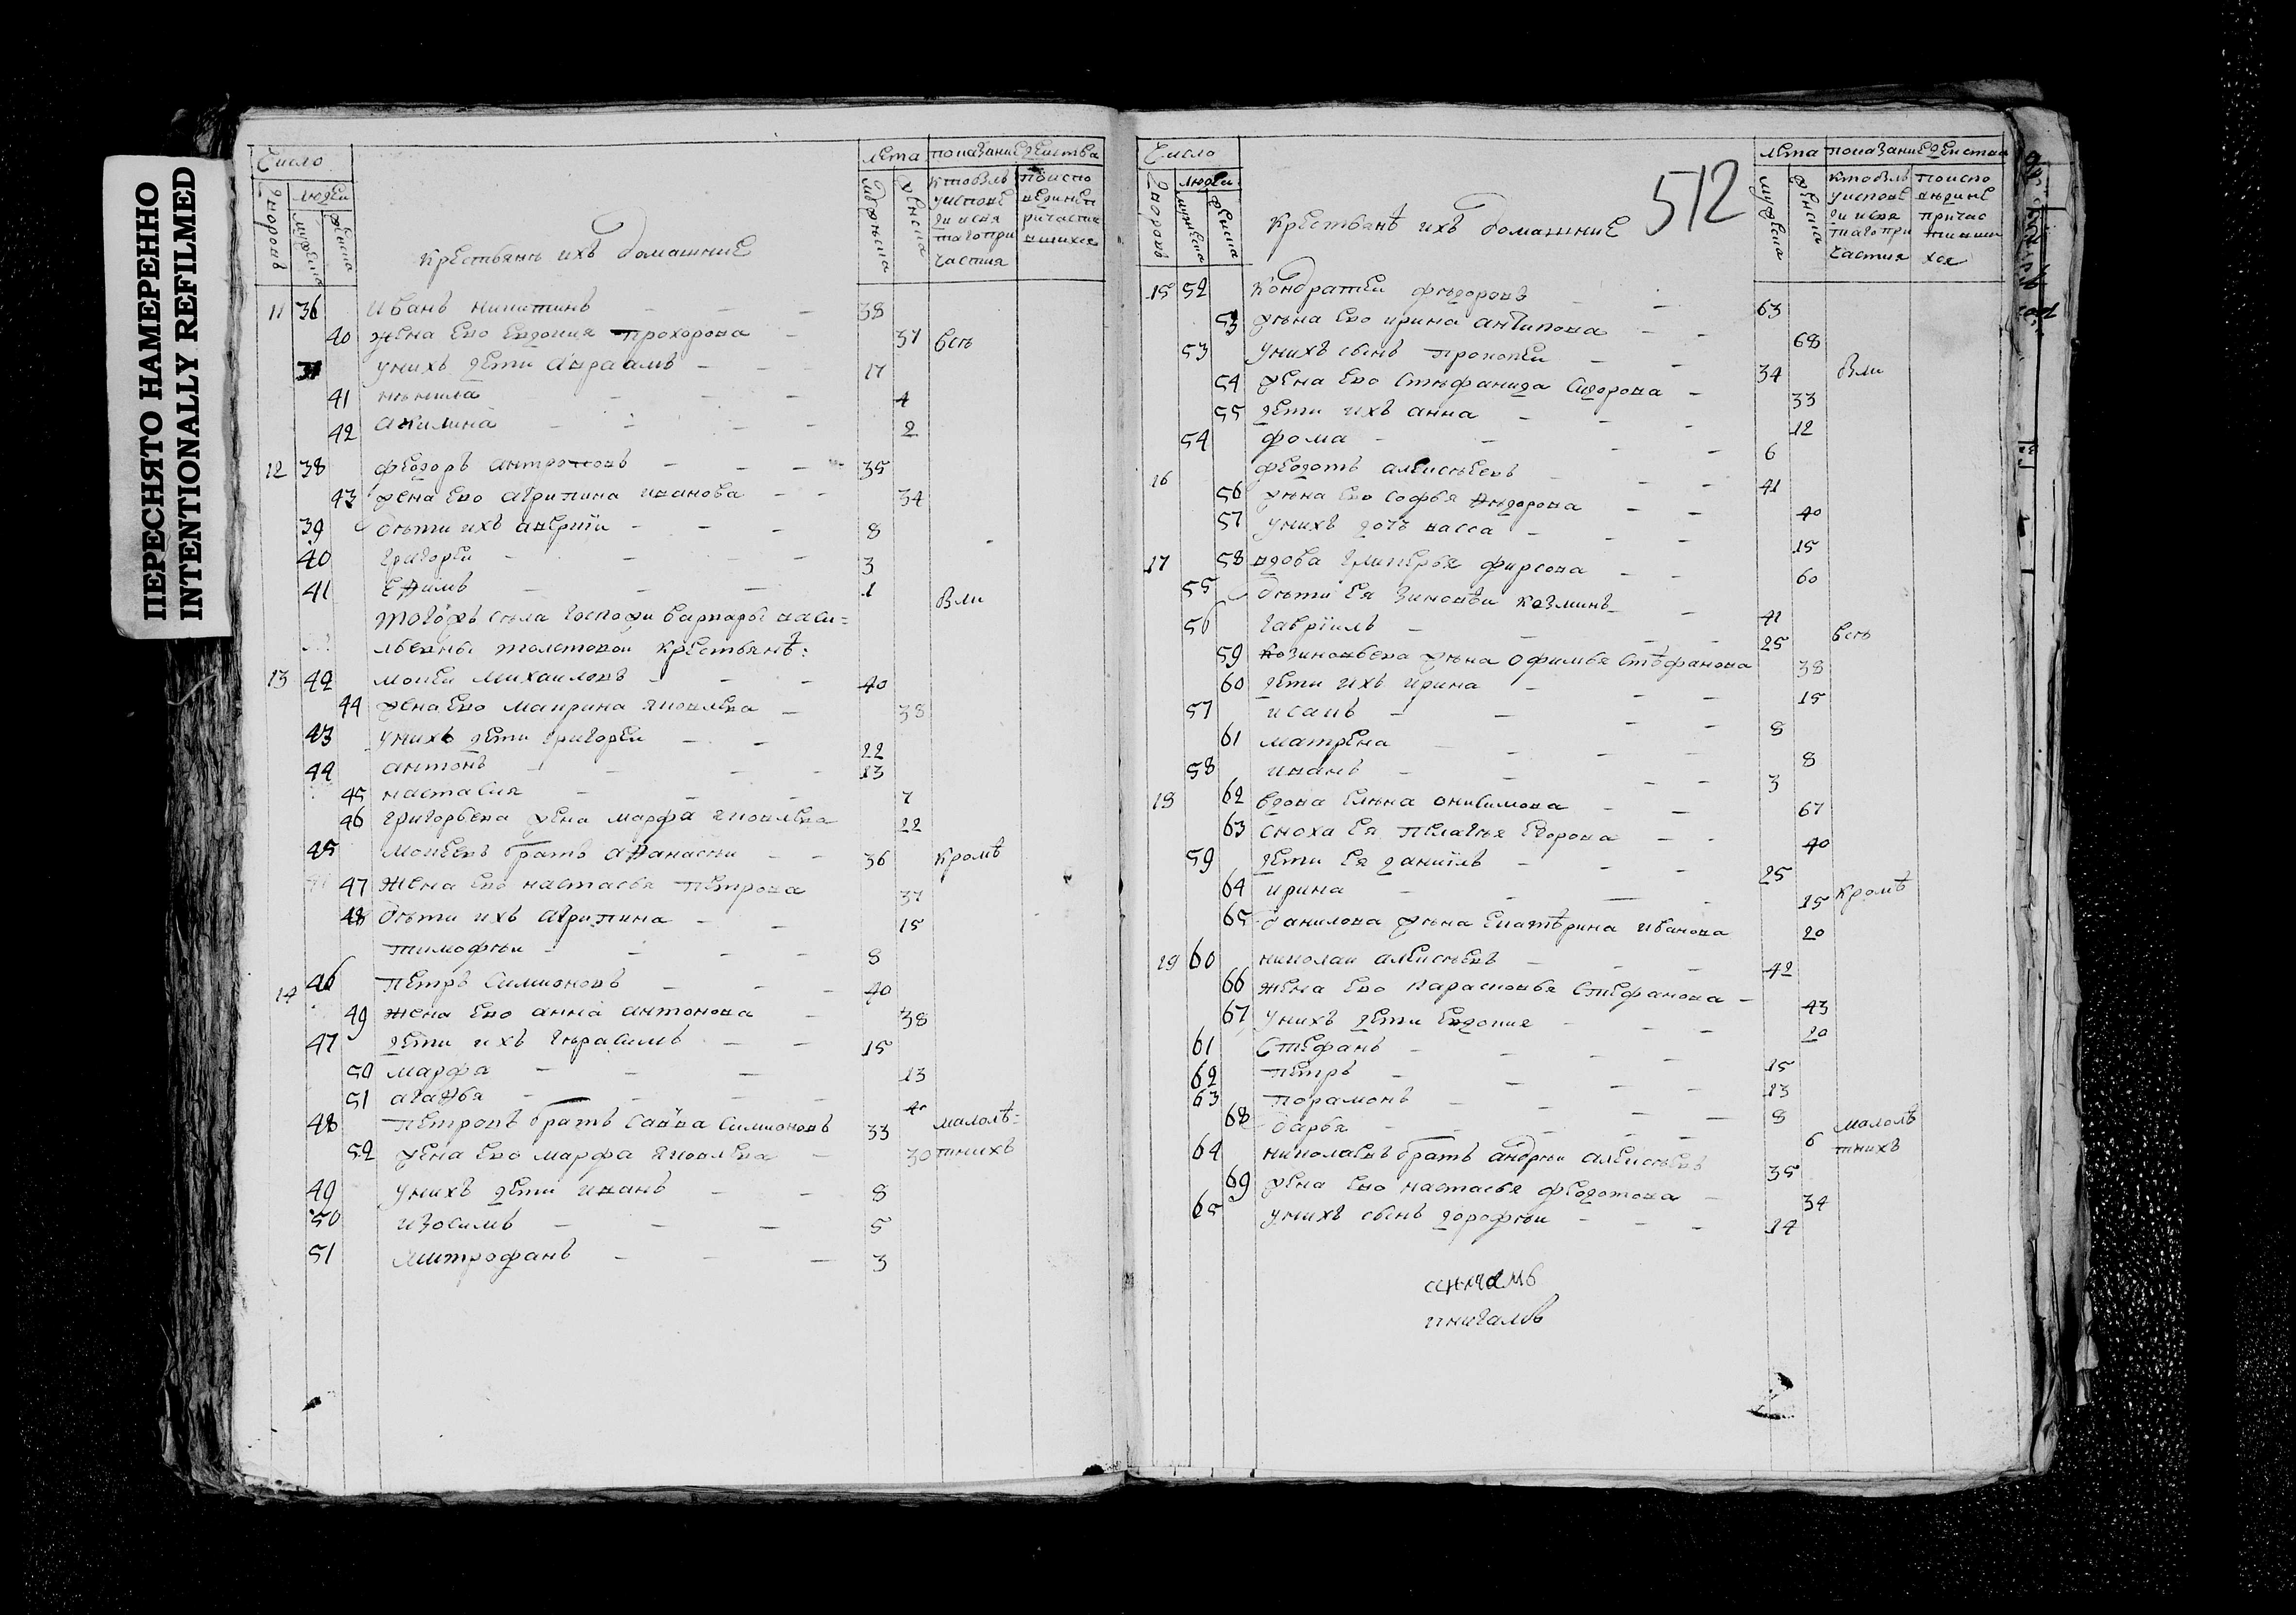 ПЕРЕСНЯТО НАМЕРЕННО
INTENTIONALLY REFILMED
Число
Дворовъ
людеи
мужеска
женска
Крестьянъ ихъ домашние
лета
мужеска
женска
показание действа
кто былъ у исповеди и свя таго при частия
по испо ведииеп ричастив шихся
11 36 Иванъ никитинъ 38
40 жена ево евдокия прохорова 37 всѣ
37 у нихъ дети авраамъ 17
41 ненила 4
42 акилина 2
12 38 феодоръ антроповъ 35
43 жена ево агрипина иванова 34
39 дѣти ихъ аверкїи 8
40 григореи 3
41 ефимъ 1
тогожъ села госпожи варвары васи= были
льевны толстовои крестьянѣ:
13 42 мокеи михаиловъ 40
44 жена ево маврина яковлева 38
43 у нихъ дети григореи 22
44 антонъ 13
45 настасия 7
46 григорьева жена марфа яковлева 22
45 мокеевъ братъ афанасеи 36 кромѣ
47 жена ево настасья петрова 37
48 дѣти ихъ агрипина 15
тимофеи 8
14 46 петръ симионовъ 40
49 жена ево анна антонова 38
47 дети ихъ герасимъ 15
50 марфа 13
51 агафья 4
48 петровъ братъ савва симионовъ 33 малолѣ=
52 жена ево марфа яковлева 30 тнихъ
49 у нихъ дети иванъ 8
50 изосимъ 5
51 митрофанъ 3
Число
Дворовъ
людеи
мужеска
женска
Крестьянѣ ихъ домашние
512
лета
мужеска
женска
показание действа
кто былъ у исповеди и свя таго при частия
по испо ведиие причас тивши хся
15 52 Кондратеи феодоровъ 63
53 жена ево ирина антипова 68
53 у нихъ сынъ прокопеи 34 были
54 жена ево стефанида сидорова 33
55 дети ихъ анна 12
54 фома 6
16 феодотъ алексеевъ 41
56 жена ево софья федорова 40
57 у нихъ дочь васса 15
17 58 вдова гликерья фирсова 60
55 дѣти ея зиновеи козминъ 41
56 гаврїилъ 25 всѣ
59 зиновьева жена офимья стѣфанова 38
60 дети ихъ ирина 15
57 исакъ 8
61 матрена 8
58 иванъ 3
18 62 вдова елена онисимова 67
63 сноха ея пелагея егорова 40
59 дети ея данїилъ 25
64 ирина 15 кромѣ
65 данилова жена екатѣрина иванова 20
19 60 николаи алексеевъ 42
66 жена ево нарасковья стефанова 43
67 у нихъ дети евдокия 20
61 стефанъ 15
62 петръ 13
63 порамонъ 8
68 дарья 6 малолѣ
64 николаевъ братъ андреи алексеевъ 35 тнихъ
69 жена ево настасья феодотова 34
65 у нихъ сынъ дорофеи 14